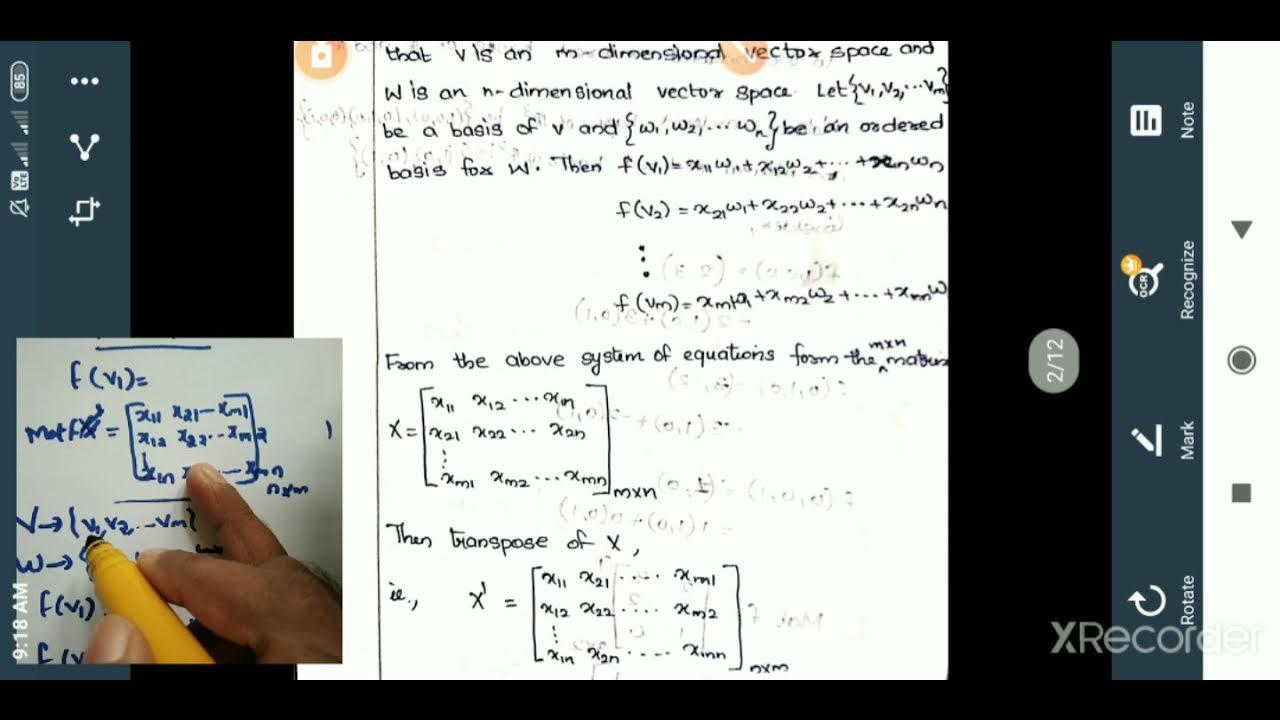 that V is an m-dimensional vector space and
W is an n-dimensional vector space. Let {v₁, v₂, ... vm}
be a basis of V and {w₁, w₂, ... wn} be an ordered
basis for W. Then f(v₁) = x₁₁w₁ + x₁₂w₂ + ... + x₁nwn
f(v₂) = x₂₁w₁ + x₂₂w₂ + ... + x₂nwn
⋮
f(vm) = xm₁w₁ + xm₂w₂ + ... + xmnw
From the above system of equations form the m×n matrix
X = [ x₁₁ x₁₂ ... x₁n
x₂₁ x₂₂ ... x₂n
⋮
xm₁ xm₂ ... xmn ] m×n
Then transpose of X,
ie., X' = [ x₁₁ x₂₁ .... xm₁
x₁₂ x₂₂ .... xm₂
⋮
x₁n x₂n .... xmn ] n×m
f(v₁)=
Mat f = [ x₁₁ x₂₁ — xm₁
x₁₂ x₂₂ .. — xm₂
x₁n — xmn ] n×m
V → {v₁, v₂, ... vm}
W → {
f(v₁)
85
9:18 AM
2/12
Note
OCR
Recognize
Mark
Rotate
XRecorder